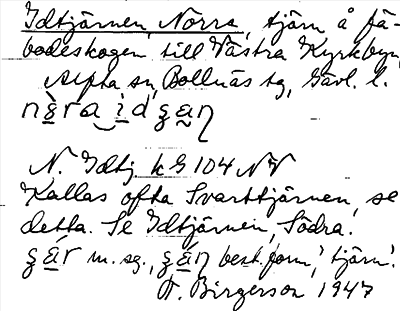 Idtjärnen, Norra, tjärn å fä-
bodeskogen till Västra Kyrkbyn,
Alfta sn, Bollnäs tg, Gävl. l.
N. Idtj. k G 104 NV
Kallas ofta Svarttjärnen, se
detta. Se Idtjärnen, Södra.
m. sg., best. form, 'tjärn'.
F. Birgerson 1947